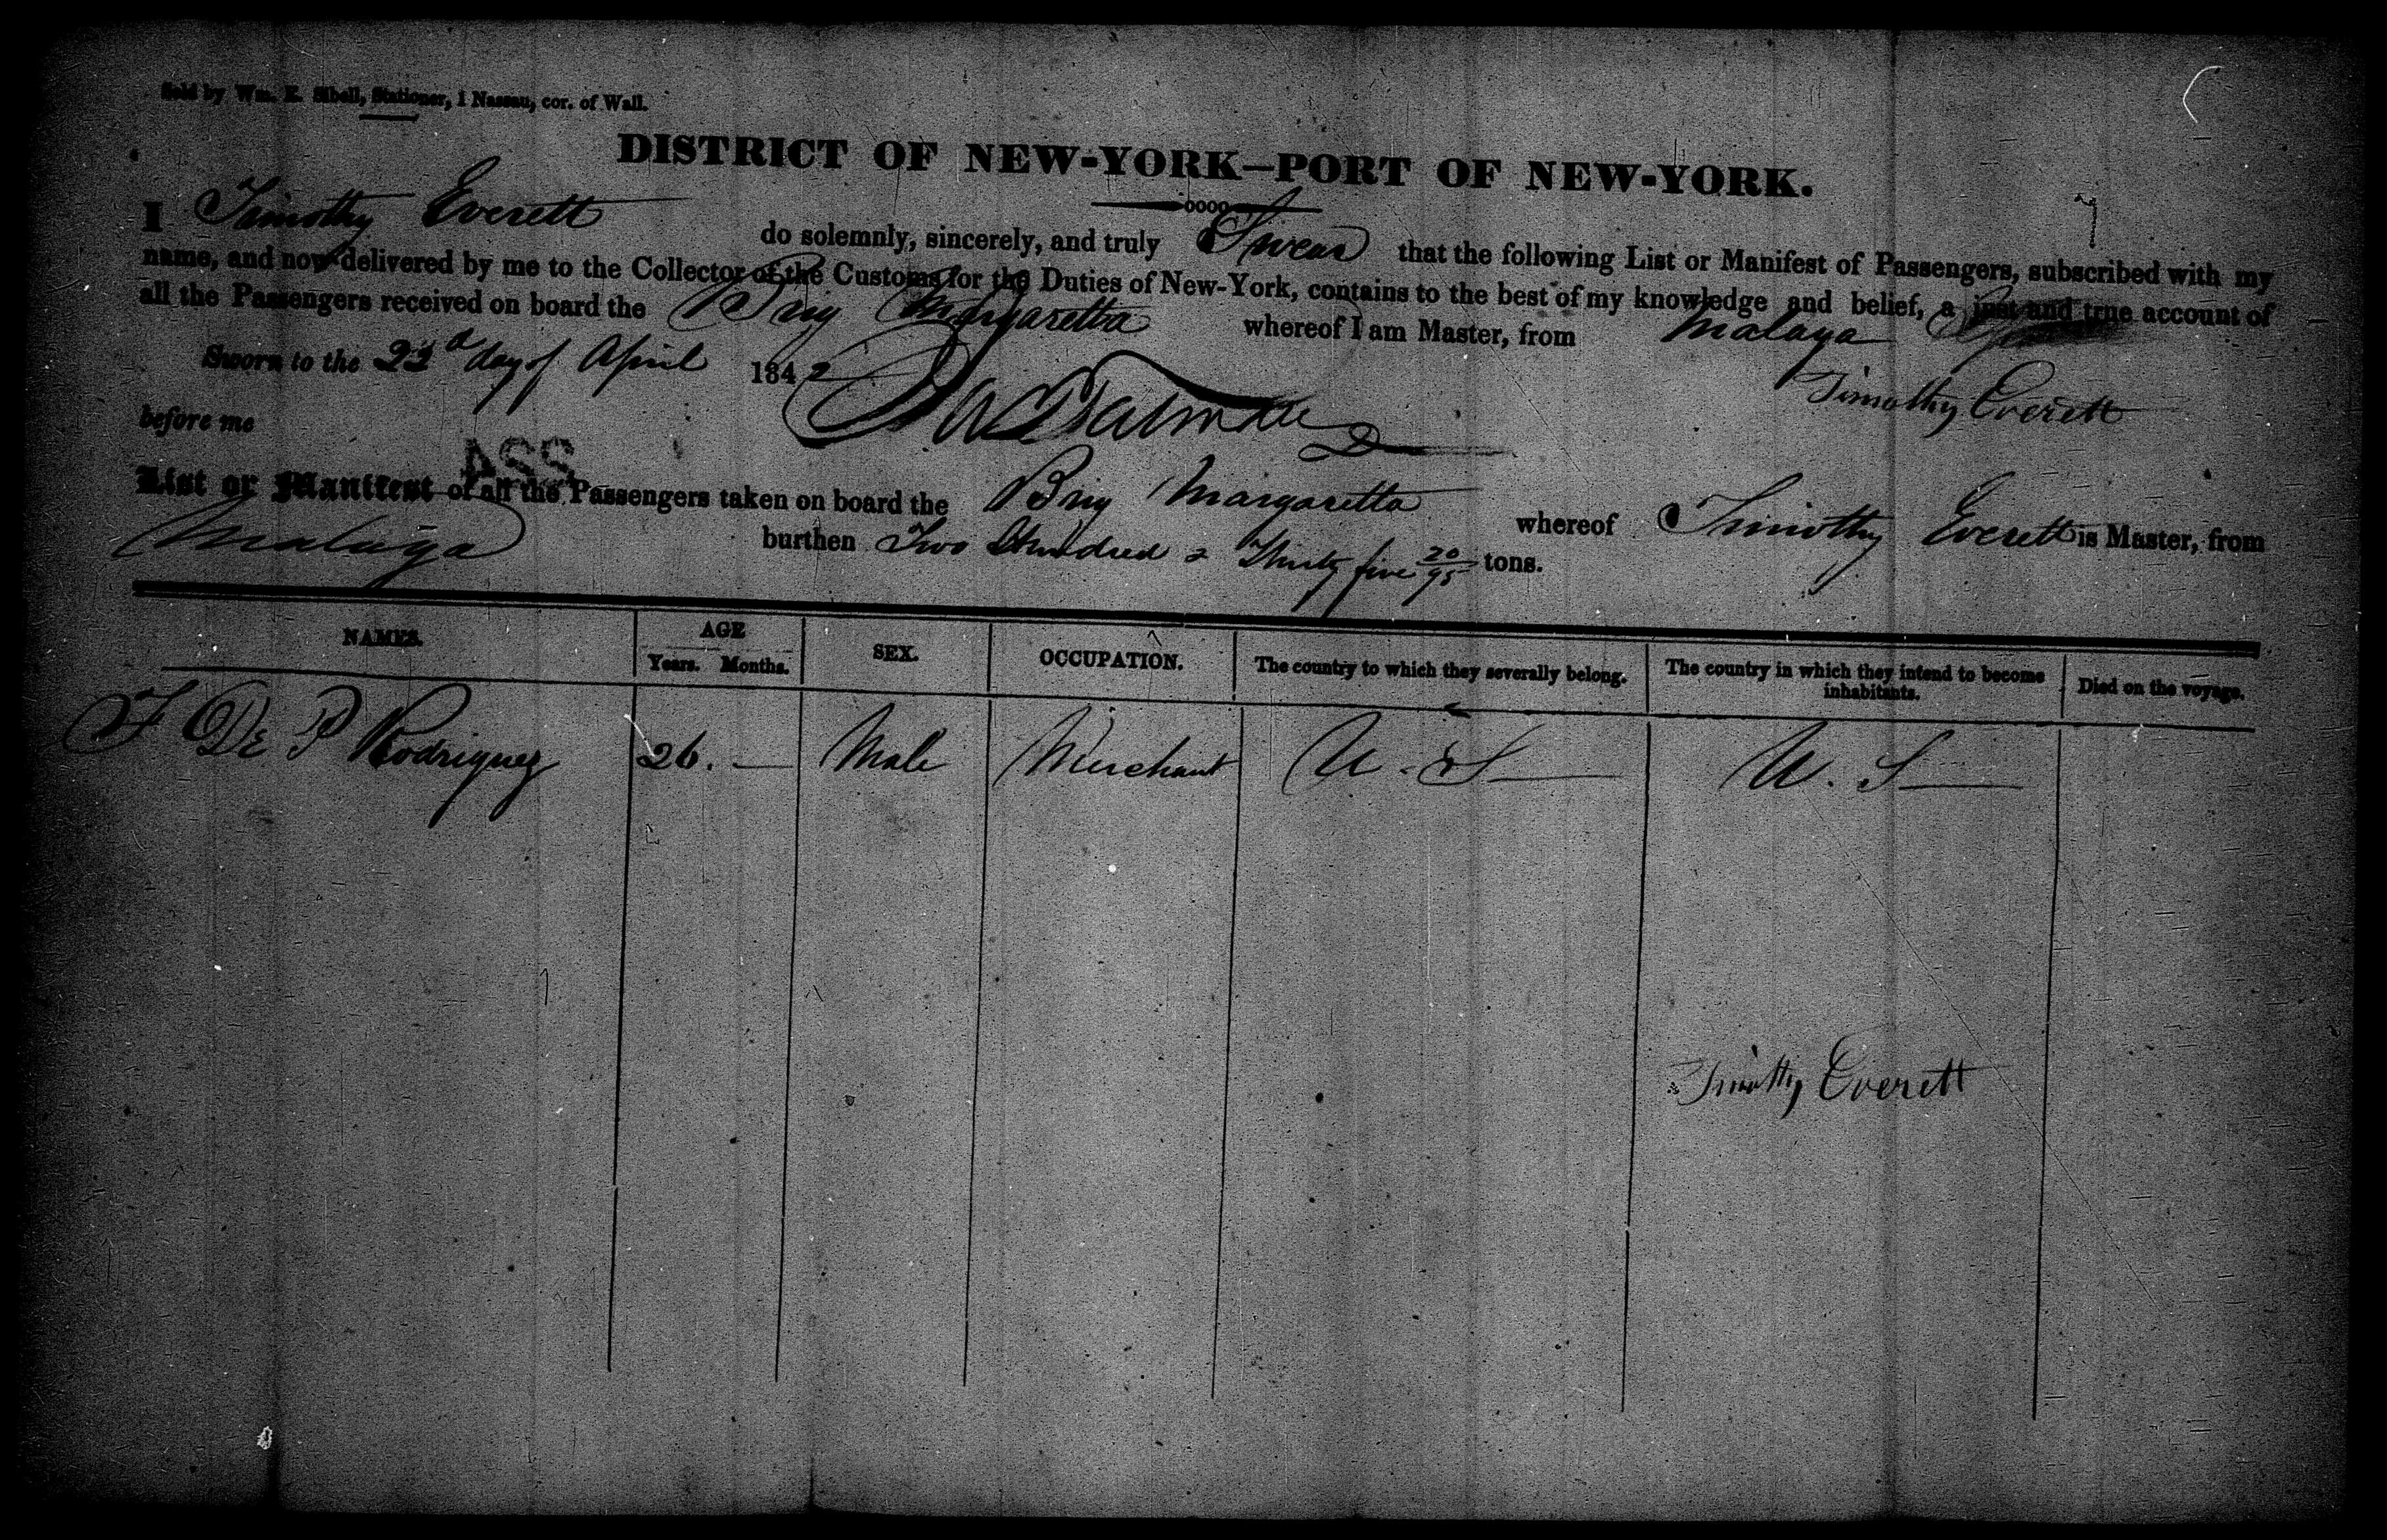 Sold by Wm. E. Sibell, Stationer, 1 Nassau, cor. of Wall.
DISTRICT OF NEW-YORK—PORT OF NEW-YORK.
I Timothy Everett do solemnly, sincerely, and truly Swear that the following List or Manifest of Passengers, subscribed with my
name, and now delivered by me to the Collector of the Customs for the Duties of New-York, contains to the best of my knowledge and belief, a just and true account of
all the Passengers received on board the Brig Margaretta whereof I am Master, from Malaga
Sworn to the 23d day of April 1842
Timothy Everett
before me
224
List or Manifest of all the Passengers taken on board the Brig Margaretta whereof Timothy Everett is Master, from
Malaga burthen Two Hundred & Thirty five 20/95 tons.
NAMES. AGE Years. Months. SEX. OCCUPATION. The country to which they severally belong. The country in which they intend to become inhabitants. Died on the voyage.
F De P Rodriguez 26. — Male Merchant U. S U. S
Timothy Everett